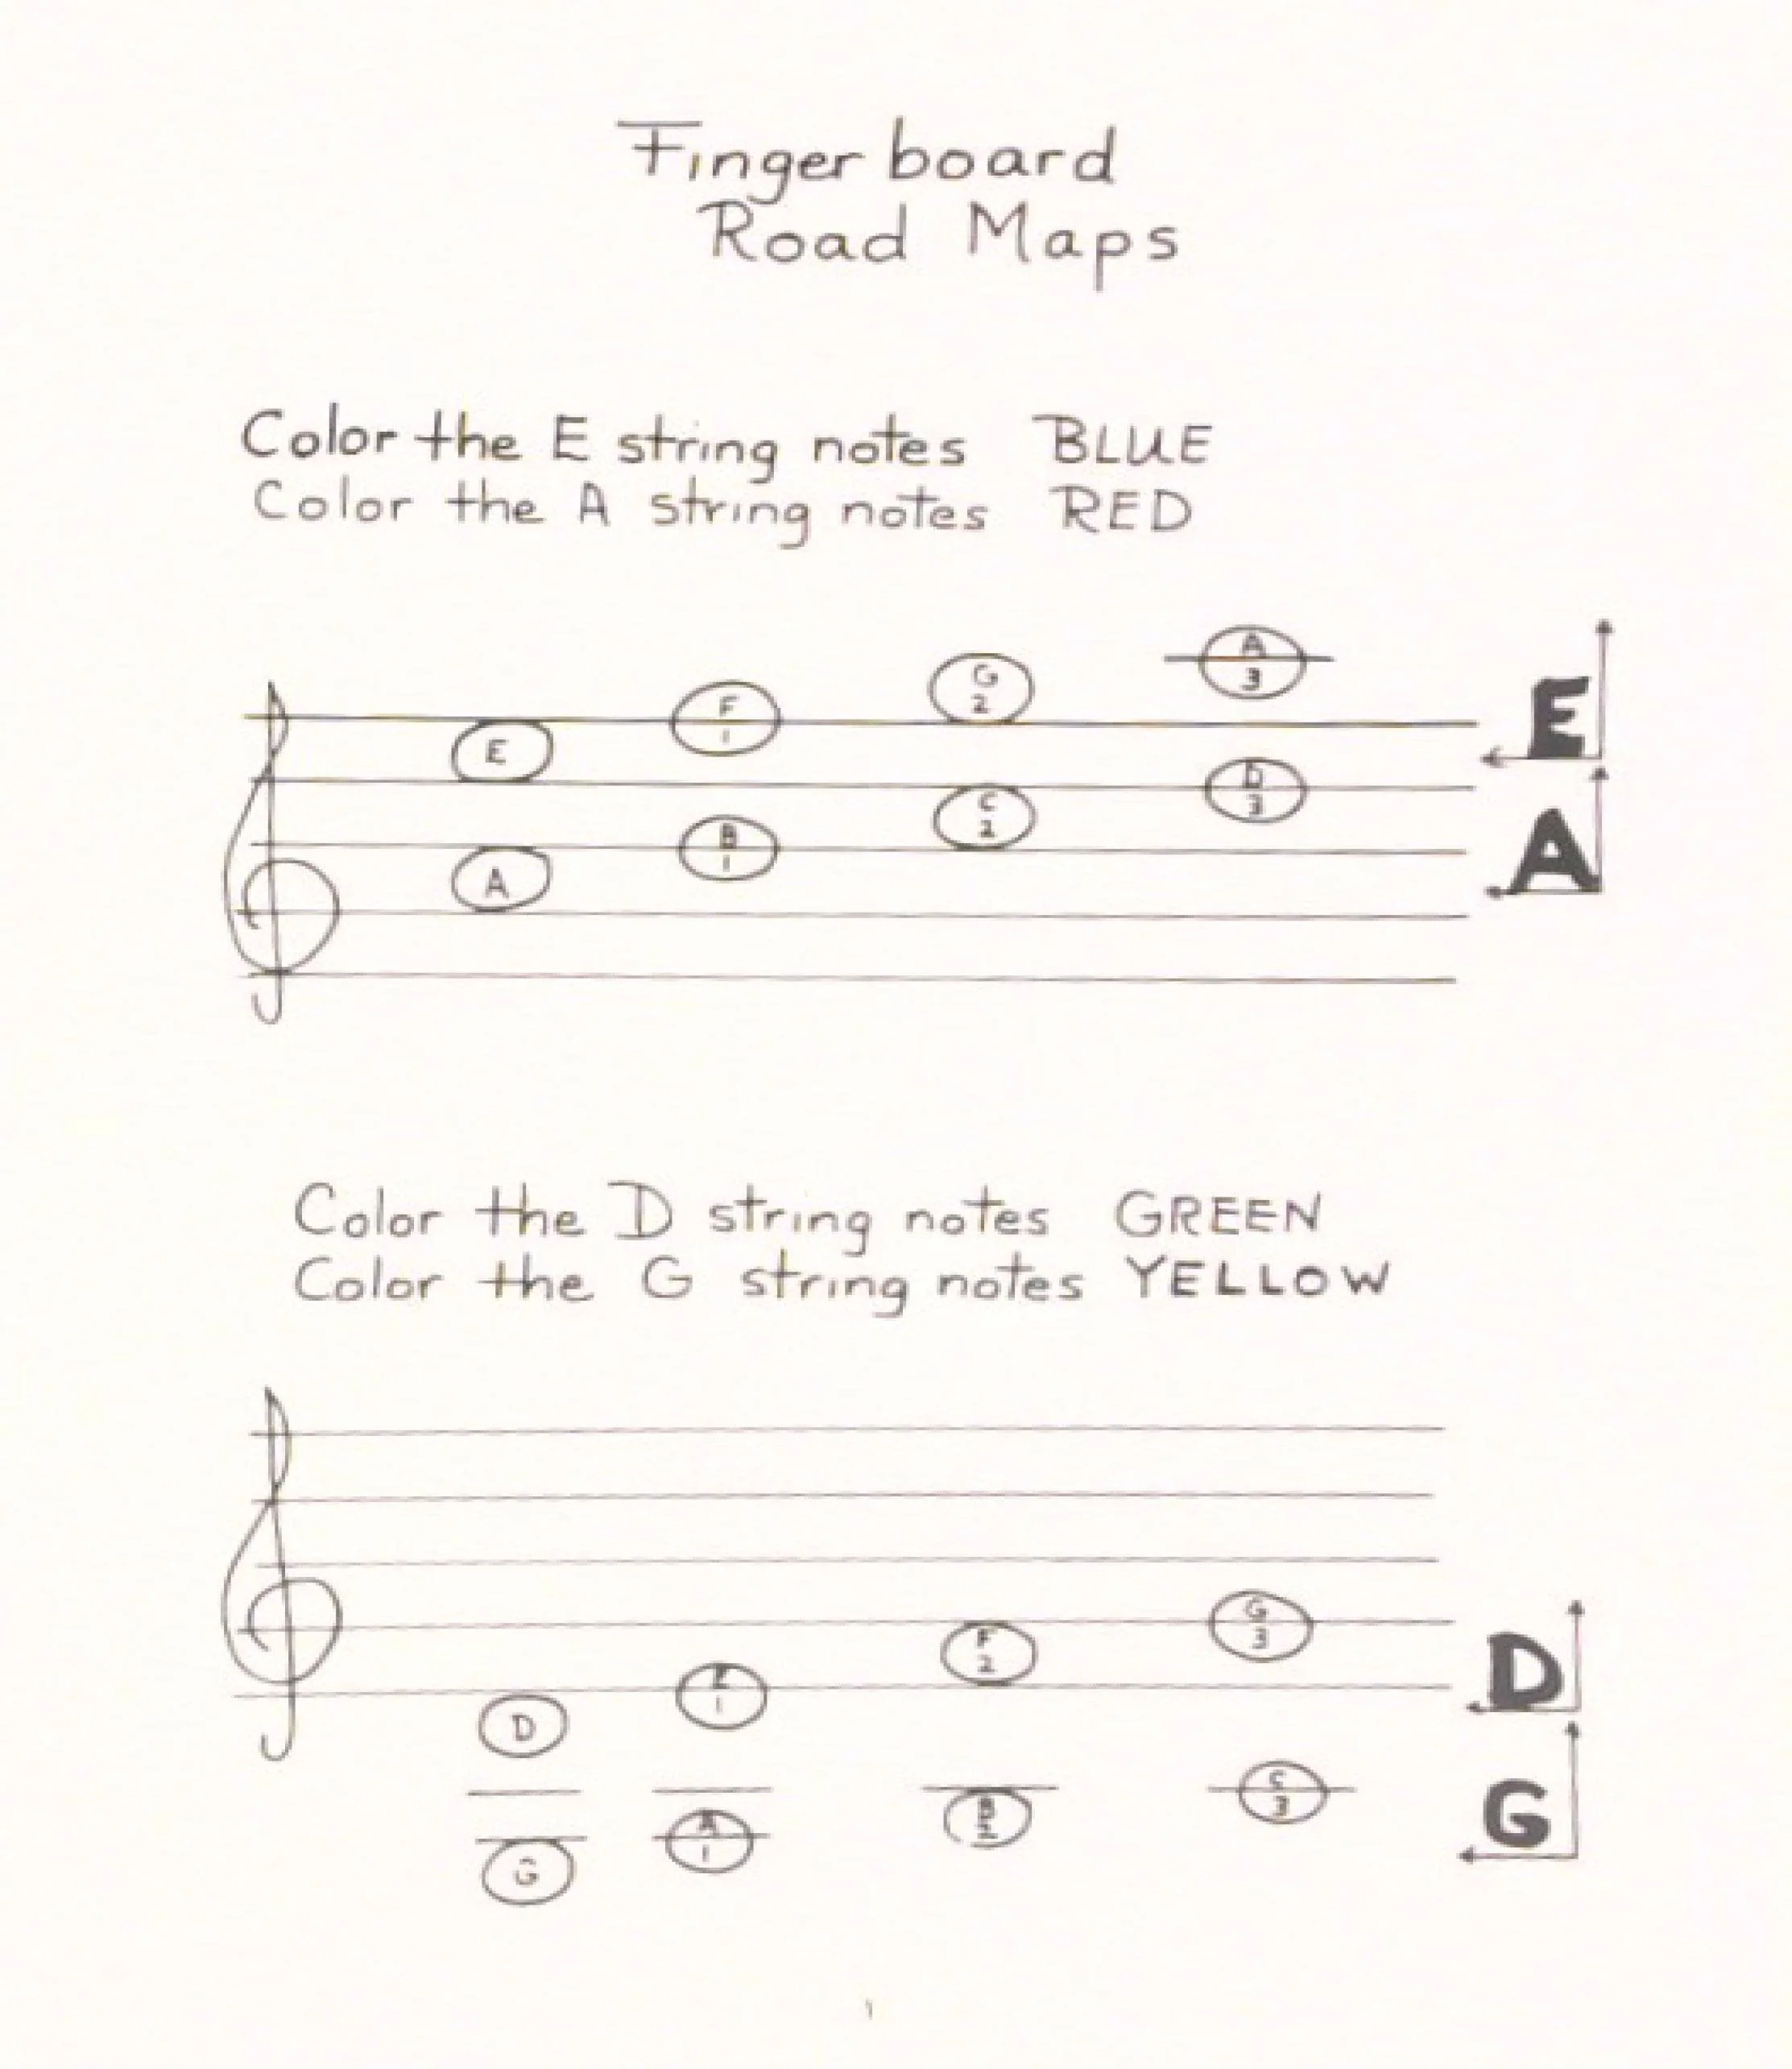 Finger board
Road Maps
Color the E string notes BLUE
Color the A string notes RED
A
3
G
2
F
1
E
E
D
3
C
2
B
1
A
A
Color the D string notes GREEN
Color the G string notes YELLOW
G
3
F
2
E
1
D
D
C
3
B
2
A
1
G
G
1